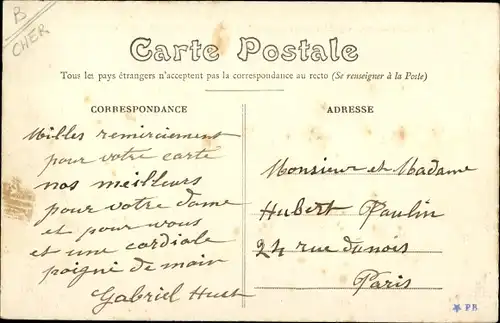 B
CHER
Carte Postale
Tous les pays étrangers n'acceptent pas la correspondance au recto (Se renseigner à la Poste)
CORRESPONDANCE
Milles remerciement
pour votre carte
nos meilleurs
pour votre dame
et pour vous
et une cordiale
poigné de main
Gabriel Huet
ADRESSE
Monsieur et Madame
Hubert Paulin
24 rue dunois
Paris
PB